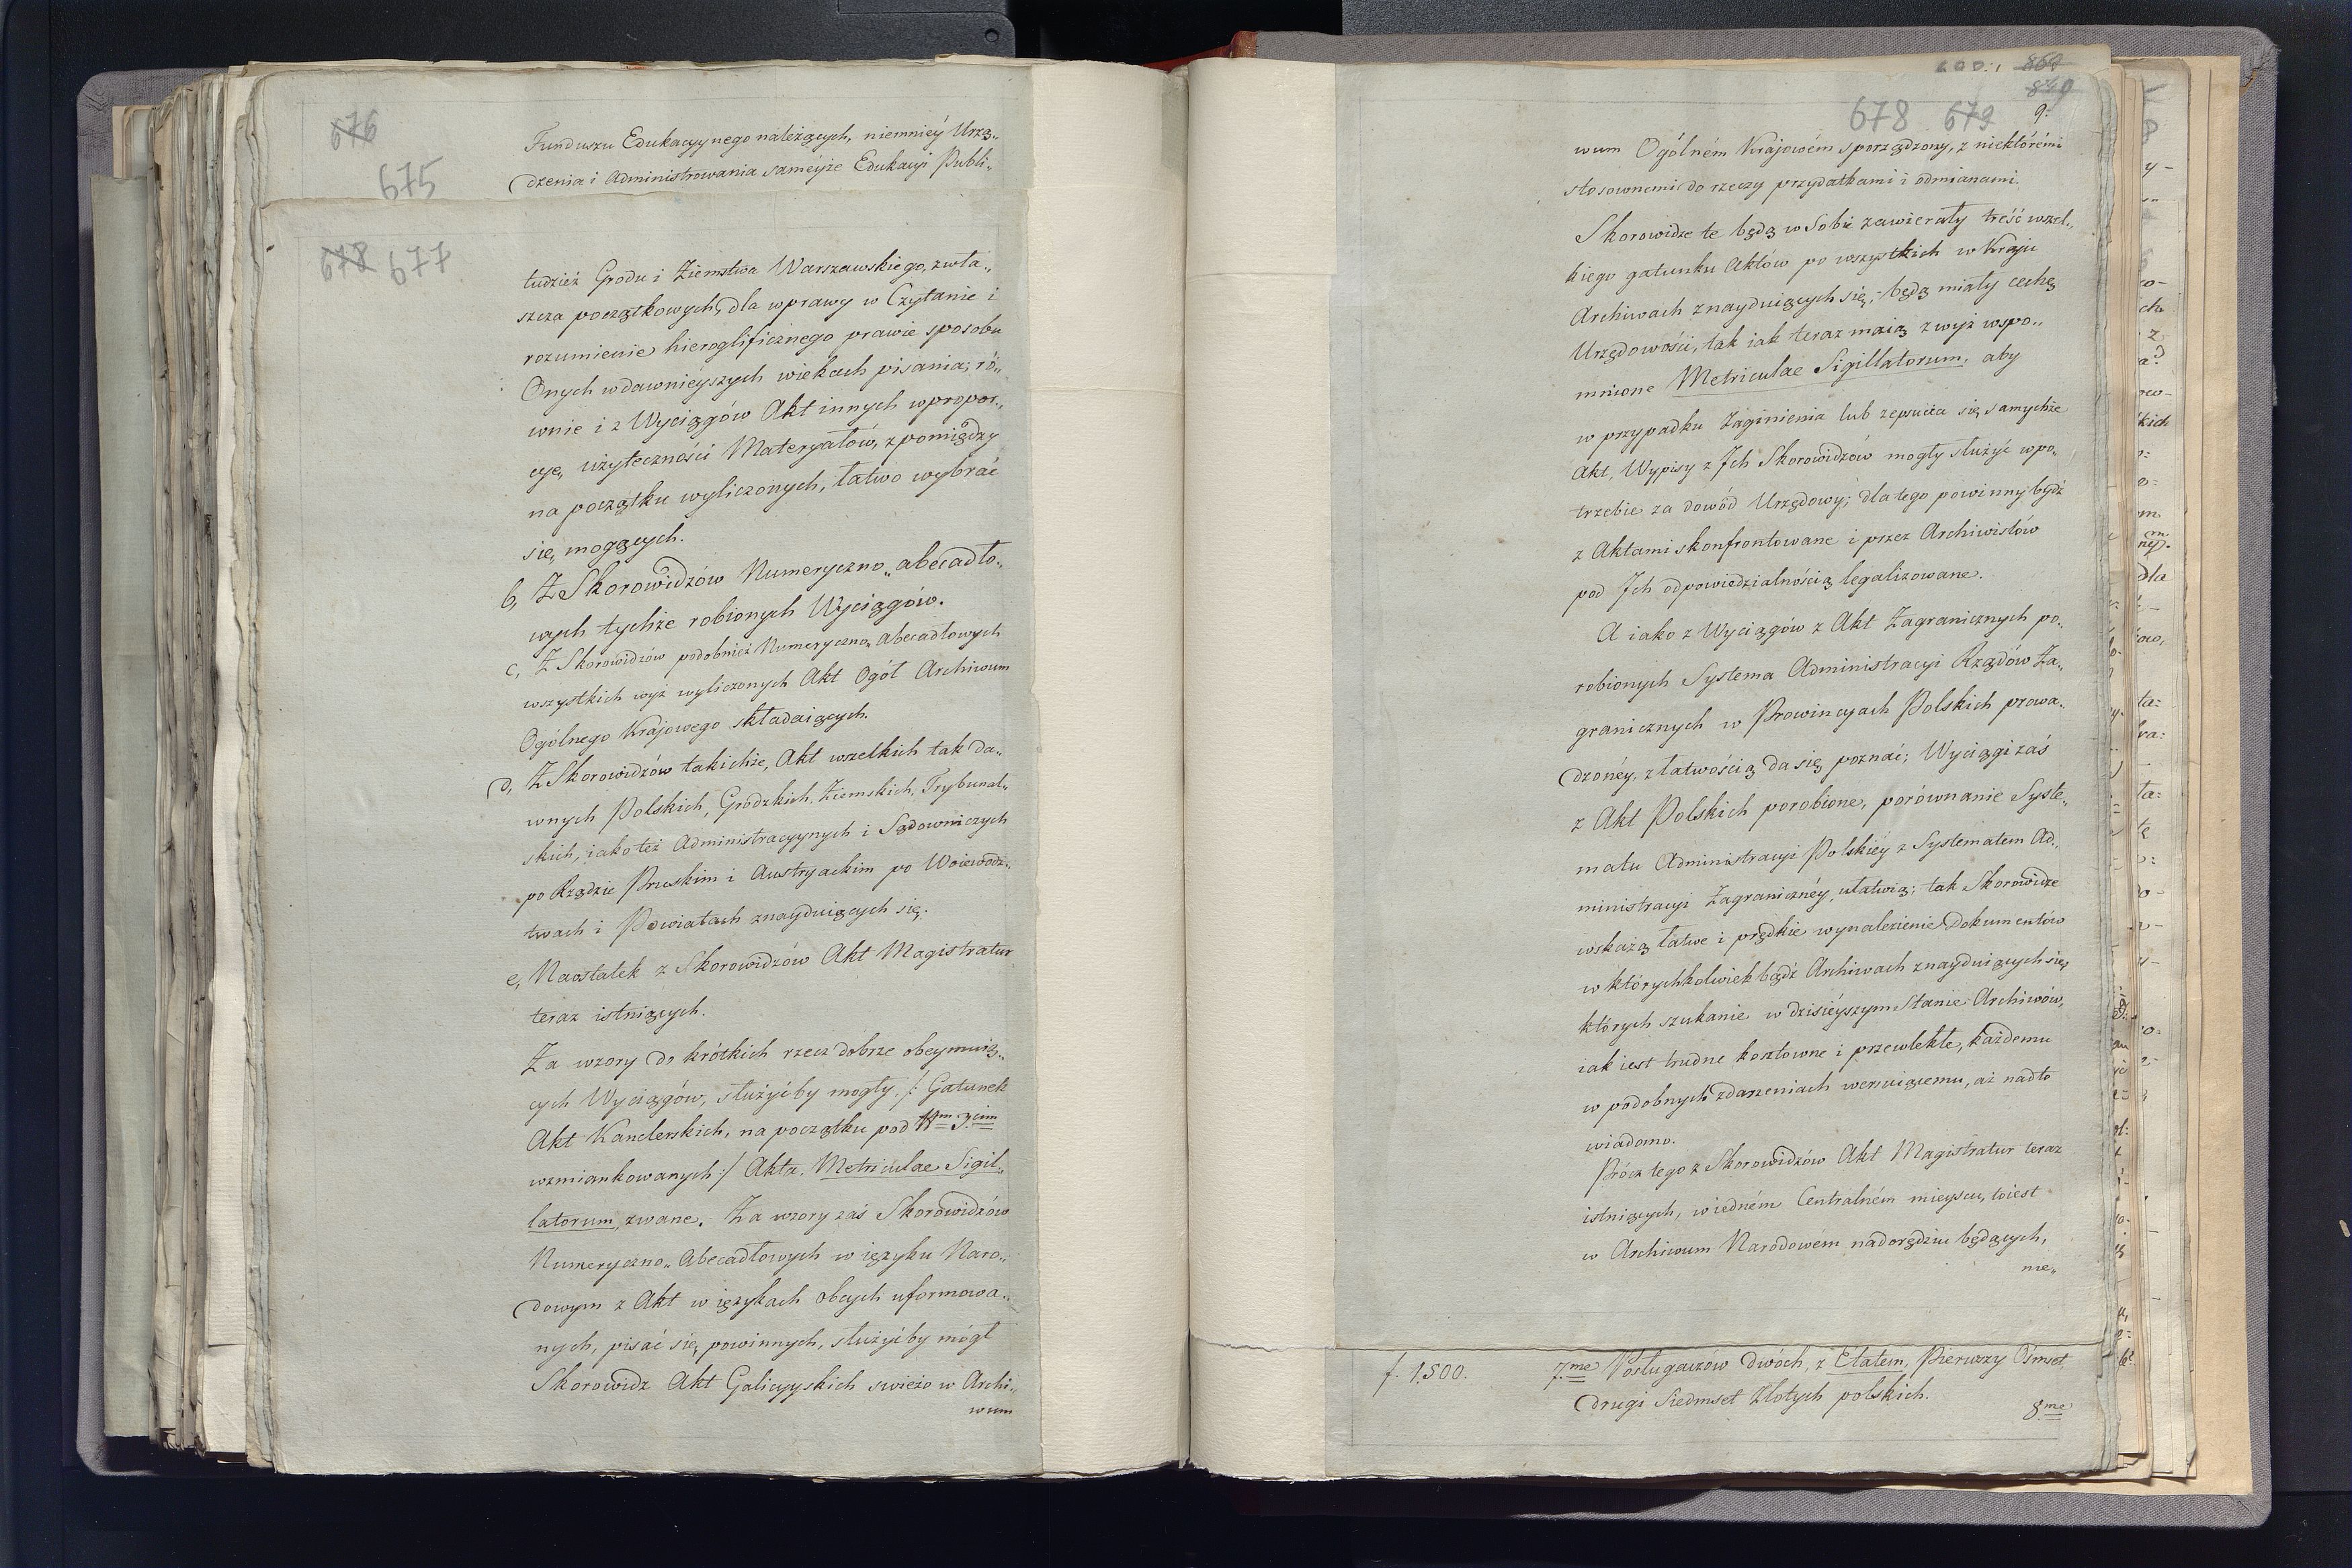 676
675
Funduszu Edukacyynego należących, niemniéy Urzą„
dzenia i administrowania saméyże Edukacyi Publi„
678 677
tudzież Grodu i Ziemstwa Warszawskiego, zwła„
szcza początkowych, dla wprawy w Czytanie i
rozumienie hieroglificznego prawie sposobu
Onych w dawnieyszych wiekach pisania; ró„
wnie i z Wyciągów Akt innych w propor„
cyę, użyteczności Materyałów, z pomiędzy
na początku wyliczonych, łatwo wybrać
się, mogących.
b, Z Skorowidzów Numeryczno„ abecadło„
wych tychże robionych Wyciągów.
c, Z Skorowidzów podobnież Numeryczno„ abecadłowych
wszystkich wyż wyliczonych Akt Ogół Archiwum
Ogólnego Krajowego składaiących.
d, Z Skorowidzów takichże, Akt wszelkich tak da„
wnych Polskich, Grodzkich, Ziemskich, Trybunal„
skich, iako też Administracyynych i Sądowniczych
po Rządzie Pruskim i Austryackim po Woiewódz„
twach i Powiatach znayduiących się.
e, Naostatek z Skorowidzów Akt Magistratur
teraz istniących.
Za wzory do krótkich rzecz dobrze obeymuią„
cych Wyciągów, służyćby mogły /: Gatunek
Akt Kanclerskich, na początku pod Nm 3cim
wzmiankowanych :/ Akta, Metriculae Sigil„
latorum, zwane. Za wzory zaś Skorowidzów
Numeryczno„ Abecadłowych w ięzyku Naro„
dowym z Akt w ięzykach obcych uformowa„
nych, pisać się, powinnych, służyćby mógł
Skorowidz Akt Galicyyskich swieżo w Archi„
wum
869
849
678 679
9.
wum Ogólném Krajowém sporządzony, z niektórémi
stosownemi do rzeczy przydatkami i odmianami.
Skorowidze te będą w Sobie zawierały treść wszel„
kiego gatunku Aktów po wszystkich w Kraju
Archiwach znayduiących się; będą miały cechę
Urzędowości, tak iak teraz maią zwyż wspo„
mnione Metriculae Sigillatorum, aby
w przypadku Zaginienia lub zepsucia się samychże
Akt, Wypisy z Jch Skorowidzów mogły służyć w po„
trzebie za dowód Urzędowy; dla tego powinny bydź
z Aktami skonfrontowane i przez Archiwistów
pod Jch odpowiedzialnością legalizowane.
A iako z Wyciągów z Akt Zagranicznych po„
robionych Systema Administracyi Rządów Za„
granicznych w Prowincyach Polskich prowa„
dzonéy, z łatwością da się poznać; Wyciągi zaś
z Akt Polskich porobione, porównanie Syste„
matu Administracyi Polskiéy z Systematem Ad„
ministracyi Zagranicznéy, ułatwią; tak Skorowidze
wskażą łatwe i prędkie wynalezienie Dokumentów
w którychkolwiek bądź Archiwach znayduiących się,
których szukanie w dzisiéyszym Stanie Archiwów,
iak iest trudne kosztowne i przewlekłe, każdemu
w podobnych zdarzeniach weruiącemu, aż nadto
wiadomo.
Prócz tego z Skorowidzów Akt Magistratur teraz
istniących, w iedném Centralném mieyscu, to iest
w Archiwum Narodowém nadorędziu będących,
nie„
f. 1,500. 7.me Posługaczów dwóch, z Etatem, Pierwszy Ośmset,
drugi Siedmset Złotych polskich.
8.me